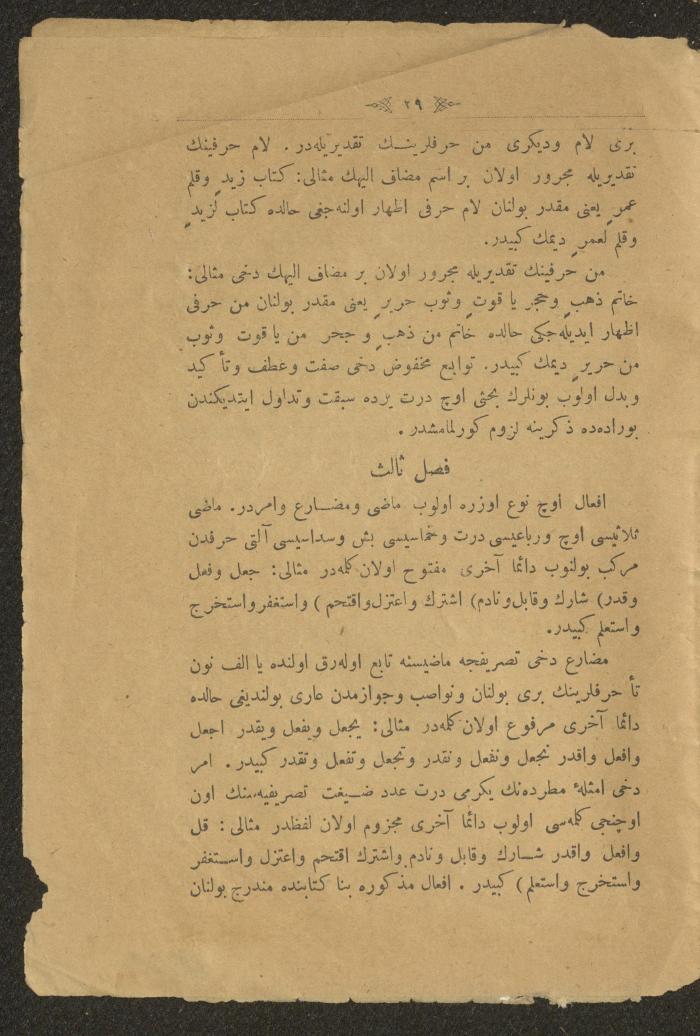 ٢٩
بری لام ودیکری من حرفلرینـك تقدیریله‌در . لام حرفینك
تقدیریله مجرور اولان بر اسم مضاف الیهك مثالی: کتاب زیدٍ وقلم
عمرٍ یعنی مقدر بولنان لام حرفی اظهار اولنه‌جغی حالده کتاب لزیدٍ
وقلم لعمرٍ دیمك کبیدر.
من حرفینك تقدیریله مجرور اولان بر مضاف الیهك دخی مثالی:
خاتم ذهبٍ وحجر یا قوتٍ وثوب حریرٍ یعنی مقدر بولنان من حرفی
اظهار ایدیله‌جکی حالده خاتم من ذهبٍ و حجر من یا قوت وثوب
من حریرٍ دیمك کبیدر. توابع مخفوض دخی صفت وعطف وتأ کید
وبدل اولوب بونلرك بحثی اوچ درت یرده سبقت وتداول ایتدیکندن
بوراده‌ده ذکرینه لزوم کورلمامشدر .
فصل ثالث
افعال اوچ نوع اوزره اولوب ماضی ومضـارع وامردر. ماضی
ثلاثیسی اوچ ورباعیسی درت وخماسیسی بش وسداسیسی آلتی حرفدن
مرکب بولنوب دائما آخری مفتوح اولان کله‌در مثالی: جعل وفعل
وقدر) شارك وقابل ونادم) اشترك واعتزل واقتحم ) واستغفر واستخرج
واستعلم کبیدر.
مضارع دخی تصریفجه ماضیسنه تابع اوله‌رق اولنده یا الف نون
تأ حرفلرینك بری بولنان ونواصب وجوازمدن عاری بولندیغی حالده
دائما آخری مرفوع اولان کله‌در مثالی: یجعل ویفعل ویقدر اجعل
وافعل واقدر نجعل ونفعل ونقدر وتجعل وتفعل وتقدر کبیدر . امر
دخی امثلهٔ مطرده‌نك یکرمی درت عدد صـیغت تصریفیه‌سنك اون
اوچنجی کله‌سی اولوب دائما آخری مجزوم اولان لفظدر مثالی : قل
وافعل واقدر شـارك وقابل ونادم واشترك اقتحم واعتزل واسـتغفر
واستخرج واستعلم) کبیدر . افعال مذکوره بنا کتابنده مندرج بولنان